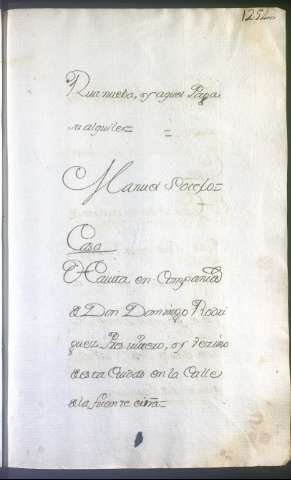 1252
Rua nueba, y aquel Paga
su alquiler =
Manuel Vocelo =
Casa
Hauita en Compania
de Don Domingo Rodri
guez, Presuitero, y Vezino
de esta Ciudad en la Calle
de la fuente